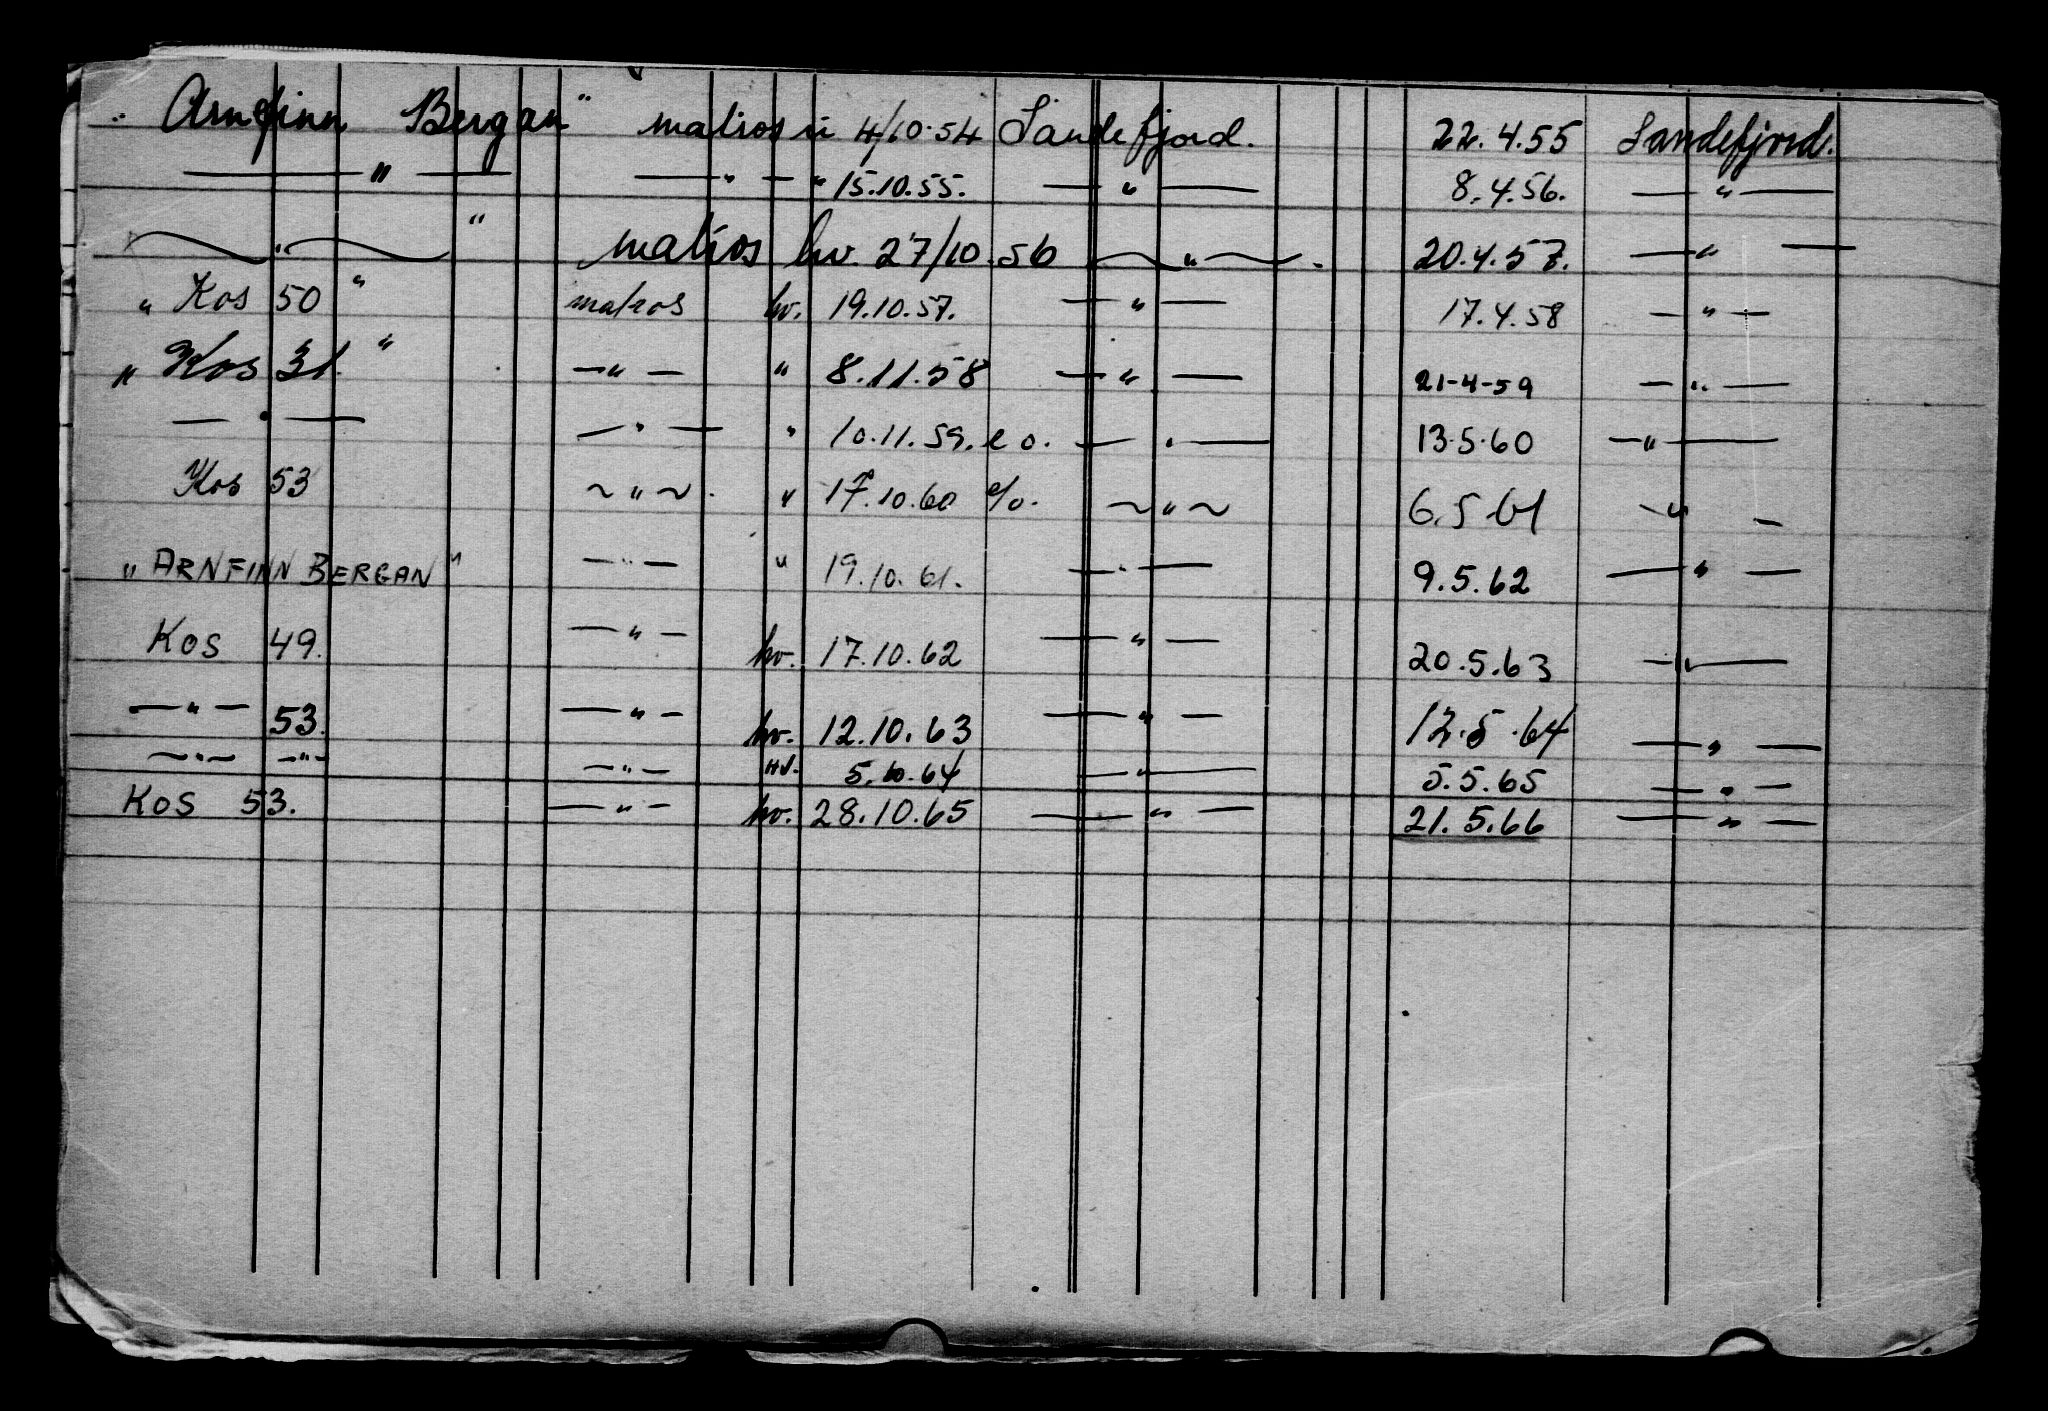 " Arnfinn Bergan " matros ü 4/10.54 Sandefjord. 22.4.55 Sandefjord.
— " — — " — " 15.10.55. — " — 8.4.56. — " —
— " — " matros hv. 27/10.56 — " — . 20.4.57. — " —
" Kos 50 " matros hv. 19.10.57. — " — 17.4.58 — " —
" Kos 31. " — " — " 8.11.58 — " — 21-4-59 — " —
— " — — " — " 10.11.59. e o. — " — 13.5.60 — " —
Kos 53 ~ " ~ . " 17.10.60 e/o. ~ " ~ 6.5.61 ~ " —
" ARNFINN BERGAN " — " — " 19.10.61. — " — 9.5.62 — " —
KOS 49. — " — hv. 17.10.62 — " — 20.5.63 — " —
— " — 53. — " — hv. 12.10.63 — " — 12.5.64 — " —
— " — — " — — " — HV. 5.10.64 — " — 5.5.65 — " —
KOS 53. — " — hv. 28.10.65 — " — 21.5.66 — " —